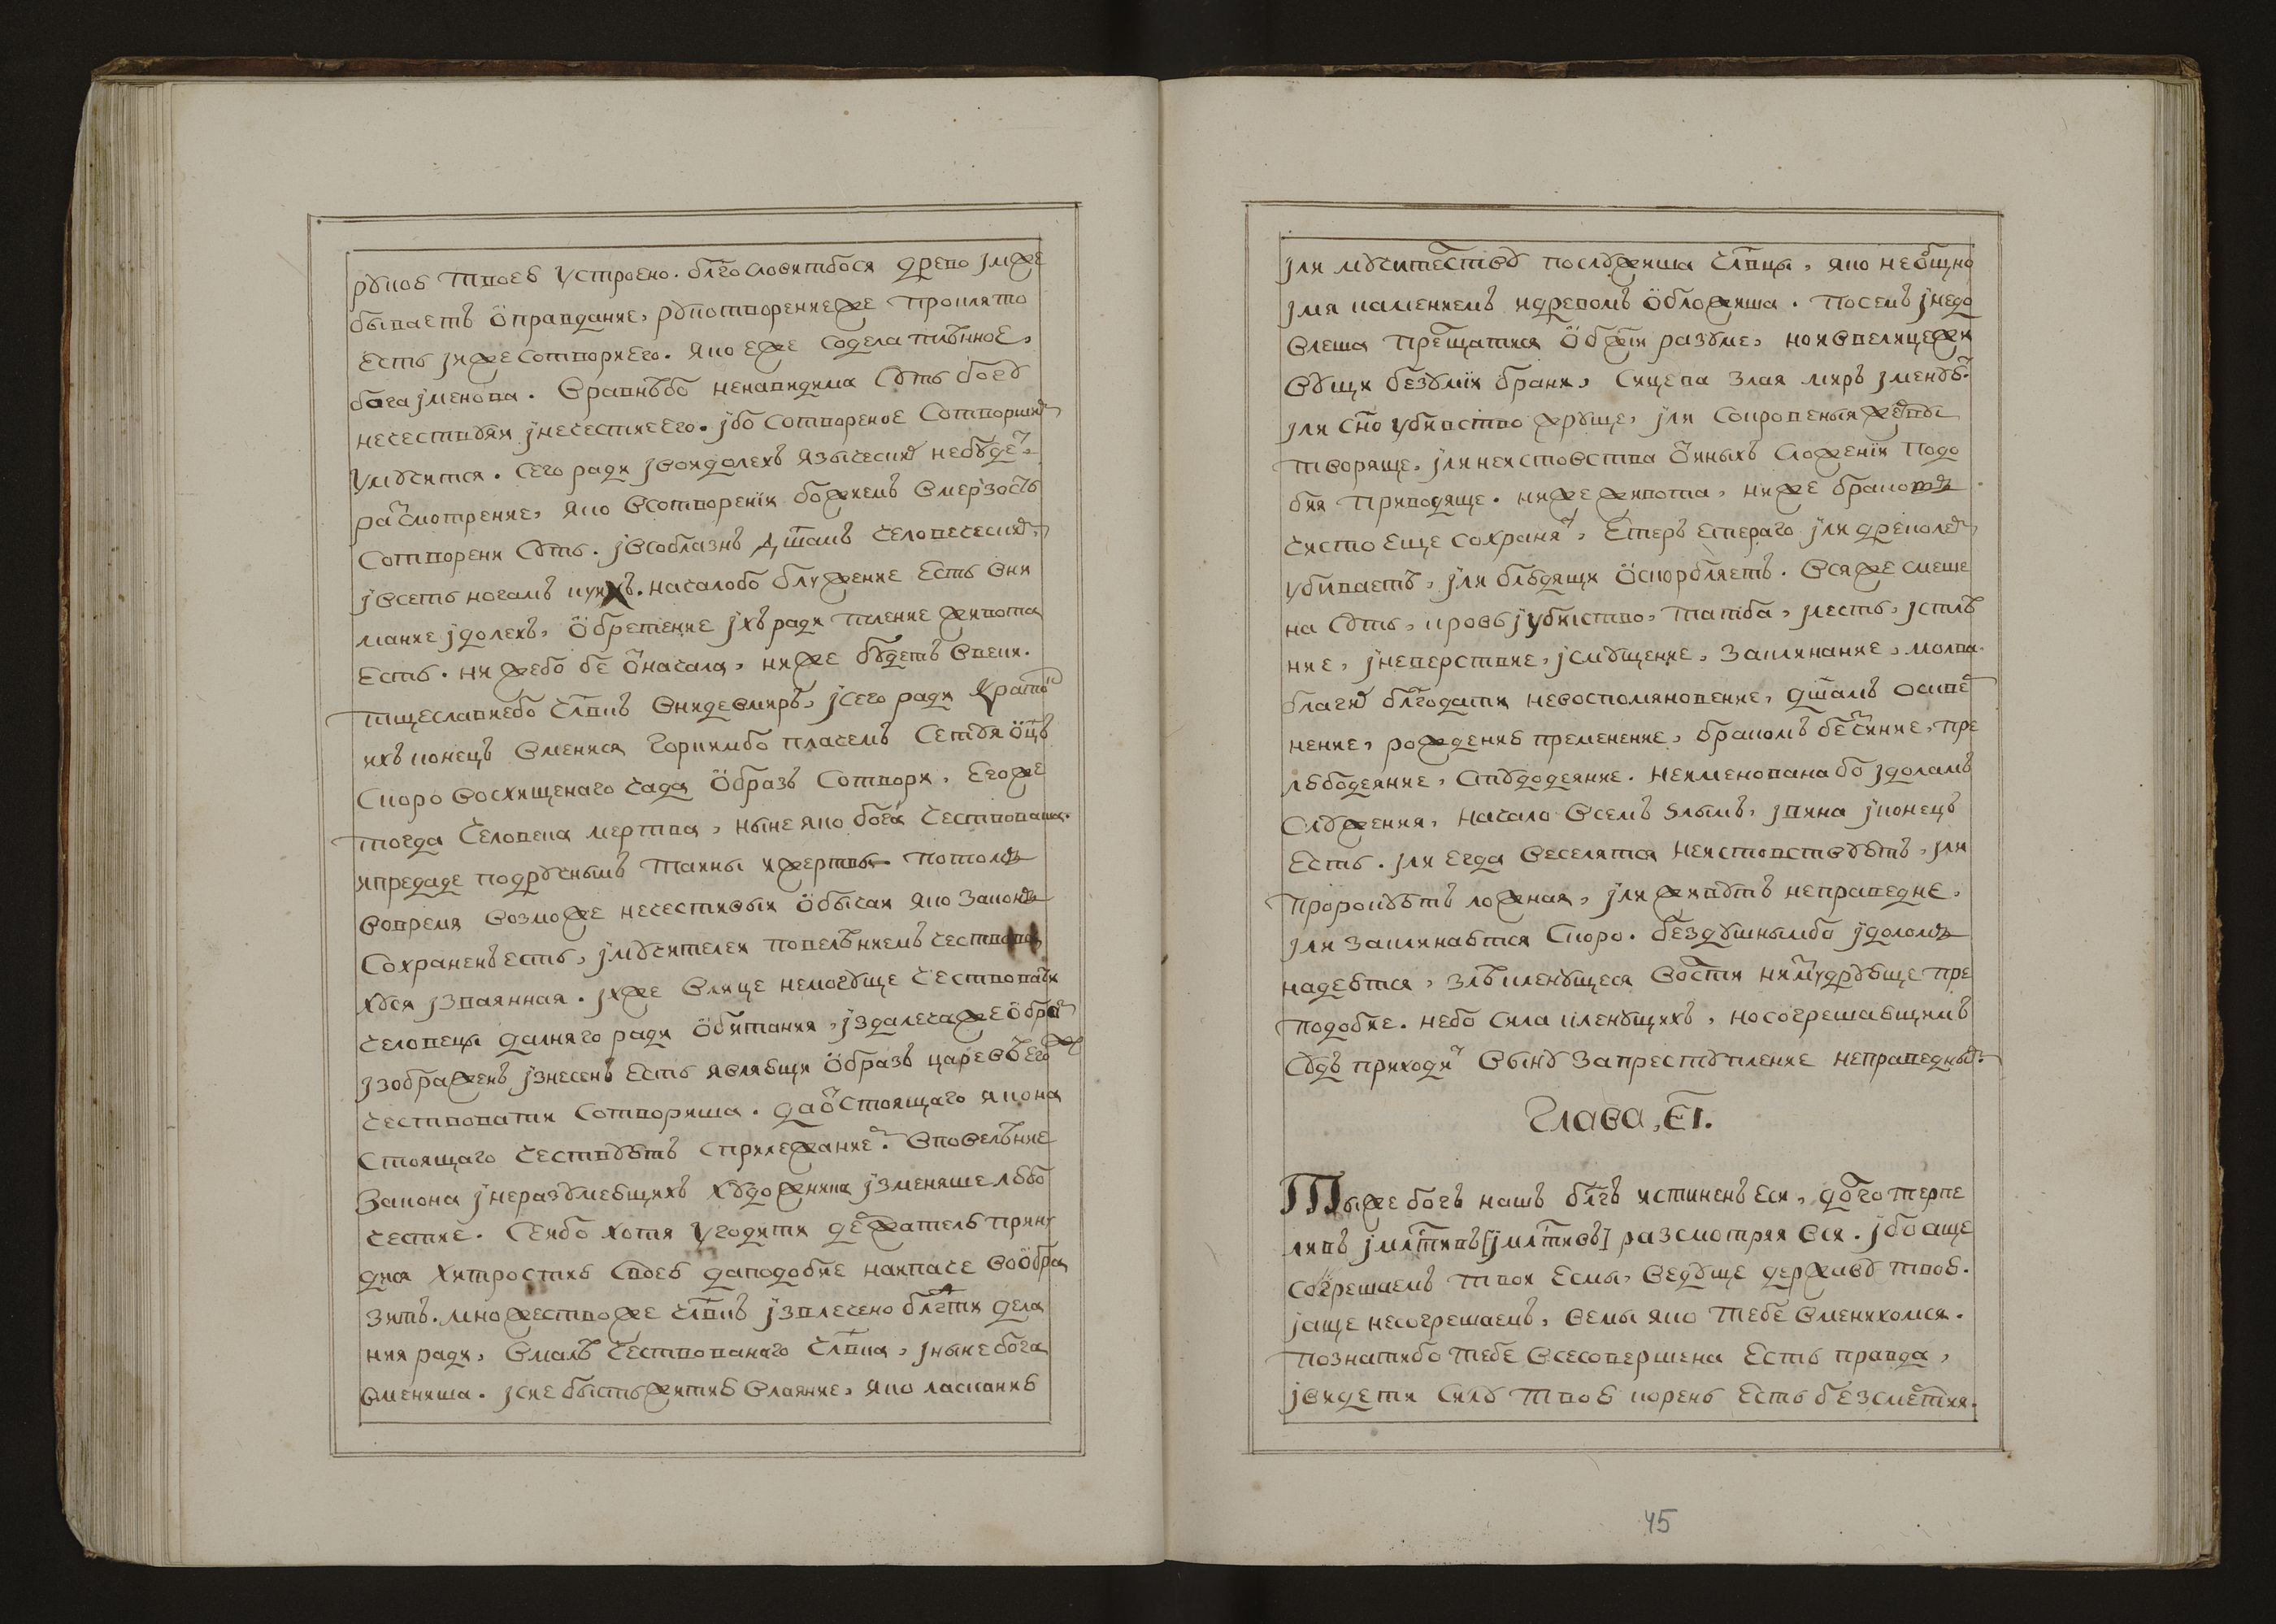 рꙋкою твоею устроено. бл҃гословитбося древо имже
бываетъ ѡправдание, рꙋкотворениеже проклято
есть иже сотвори его. яко еже содела тлѣнное,
бога именова. вравнѣбо ненавидима сꙋть богꙋ
нечествꙋяи инечестие его. ибо сотвореное сотворшиⷨ
умꙋчится. сего ради ивоидолехъ языческиⷯ небꙋдеⷮ
раⷥсмотрение, яко всотворении божиемъ вмерзость
сотворени сꙋть. ивсоблазнъ дш҃амъ человеческиⷨ
ивсеть ногамъ            . началобо блужение есть вни
мание идолехъ, ѡбретение ихъ ради тление живота
есть. ни жебо бе ѿначала, ниже бꙋдетъ ввеки.
тщеславиебо чл҃вкъ внидевмиръ, исего ради краткиⷩ
ихъ конецъ вменися горкимбо плачемъ сетꙋя ѡц҃ъ
скоро восхищенаго чада ѡбразъ сотвори. егоже
тогда человека мертва, ныне яко бога чествоваша.
ипредаде подрꙋчнымъ таины ижертвы потомъ
вовремя возможе нечестивыи ѡбычаи яко законъ
сохраненъ есть, имꙋчителеи повелѣниемъ чествова
хꙋся изваянная. ихже влице немогꙋще чествоваⷮи
человецы далняго ради ѡбитания, издалечажеѡбраⷥ
изображенъ изнесенъ есть являющи ѡбразъ царевъ егоⷤ
чествовати сотвориша. даѿстоящаго якона
стоящаго чествꙋютъ сприлежаниеⷨ. вповелѣние
закона инеразꙋмеющихъ хꙋдожника изменяше любо
честие. сеибо хотя угодити деⷬжателю прину
дися хитростию своею даподобие наипаче воѡбра
зитъ. множествоже чл҃вкъ извлечено блгⷣти дела
ния ради, вмалѣ чествованаго чл҃вка, иныне бога
вмениша. исие бысть житию влаяние, яко ласкание
или мꙋчителⷭствꙋ послꙋжиша чл҃вцы, яко неѡбщно
имя камениемъ идревомъ ѡбложиша. посемъ инедо
влеша прелⷭщатися ѡбж҃ии разꙋме, но ивелицежи
вꙋщи безꙋмия брани, сицева злая миръ именꙋюⷮ.
или сн҃оубиство жрꙋще, или сокровеныя жеⷬтвы
творяще, или неистовства ѿиныхъ сложении подо
бия приводяще. ниже живота, ниже браковъ
чисто еще сохраняⷮ, етеръ етераго или дреколеⷨ
убиваетъ, или блѣдящи ѡскорбляетъ. всяже смеше
на сꙋть, кровь иубиство, татба, лесть, истлѣ
ние, иневерствие, исмꙋщение, заклинание, молва.
благиⷯ бл҃годати невоспомяновение, дш҃амъ оскве
нение, рождению пременение, бракомъ беⷥчиние, пре
любодеяние, стꙋдодеяние. неименованабо идоламъ
слꙋжения, начало всемъ злымъ, ивина иконецъ
есть. или егда веселятся неистовствꙋютъ, или
пророкꙋютъ ложная, или живꙋтъ неправедне,
или заклинаются скоро. бездꙋшнымбо идоломъ
надеются, злѣ кленꙋщеся             пре
подобие. небо сила кленꙋщихъ, носогрешающимъ
сꙋдъ приходиⷮ выну запрестꙋпление неправедныⷯ.
Глава, є҃і.
Тыже богъ нашъ бл҃гъ истиненъ еси, доⷧготерпе
ливъ имлтⷭивъ[имлтⷭивъ] разсмотряя вся. ибо аще
согрешаемъ твои есмы, ведꙋще державꙋ твою.
иаще несогрешаемъ, вемы яко тебе вменихомся.
познатибо тебе всесовершена есть правда,
ивидети силꙋ твою корень есть безсмеⷬтия.
45